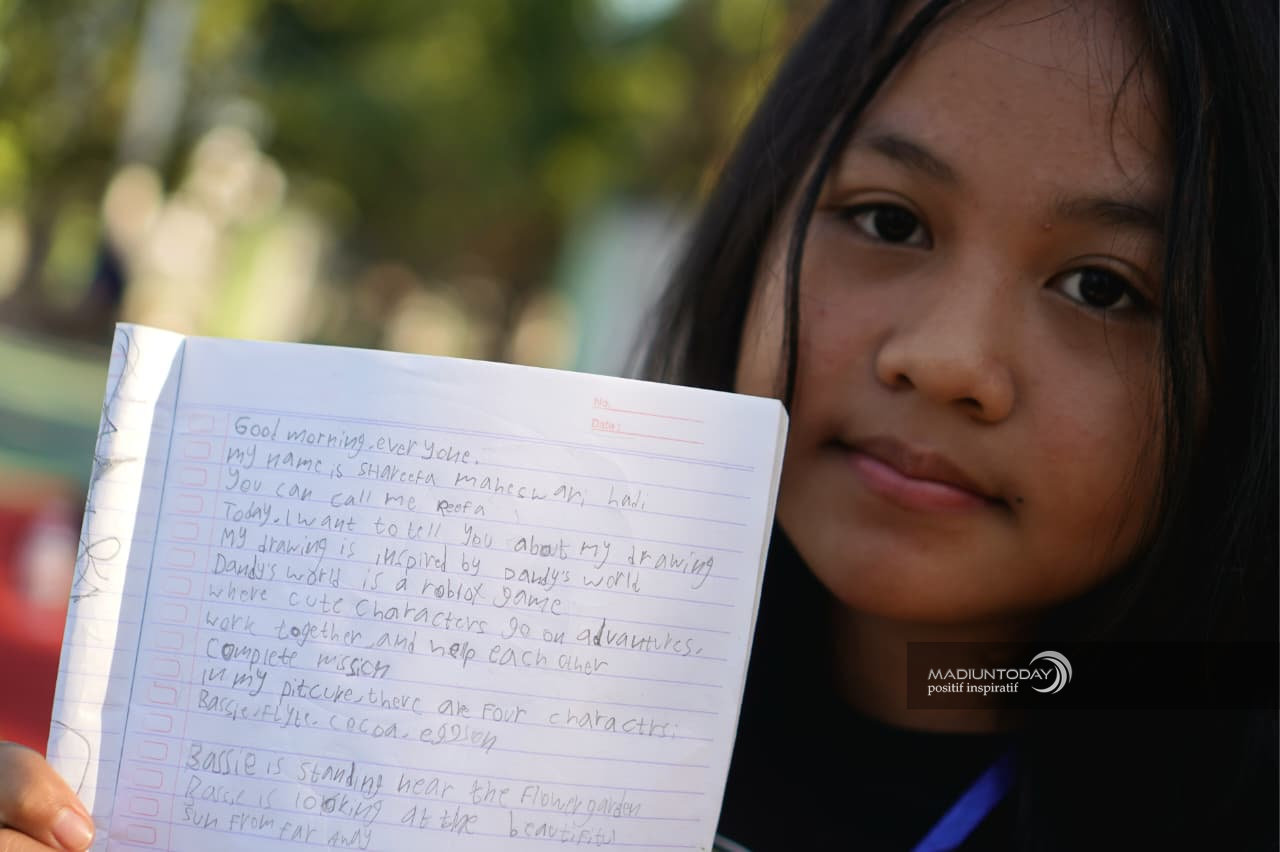 No.
Date :
Good morning. everyone.
my name is SHAREEFA maheswari hadi
You can call me Reefa
Today. I want to tell you about my drawing
My drawing is inspired by Dandy's world
Dandy's world is a roblox game
where cute characters go on advantures.
work together, and help each other
Complete mission
in my pitcure, there are Four charactrs:
Bassie. Flyte. cocoa. eggson
Bassie is standing near the Flower garden
Bassie is looking at the beautiful
sun From far
MADIUNTODAY
positif inspiratif